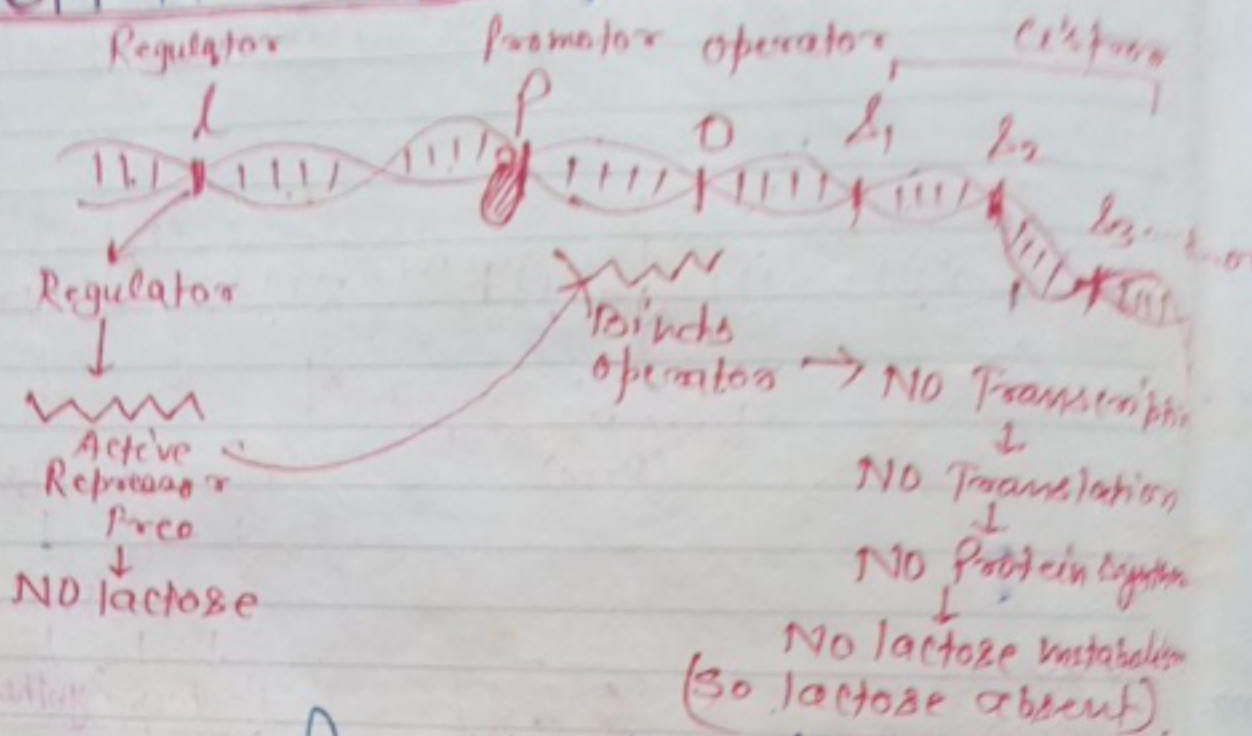 Regulator Promotor operator
l P O Z1 Z2
Regulator
Active
Repressor
NO lactose
Binds
operator → NO Transcriptio
NO Translation
NO Protein
NO lactose metabolism
(So lactose absent)